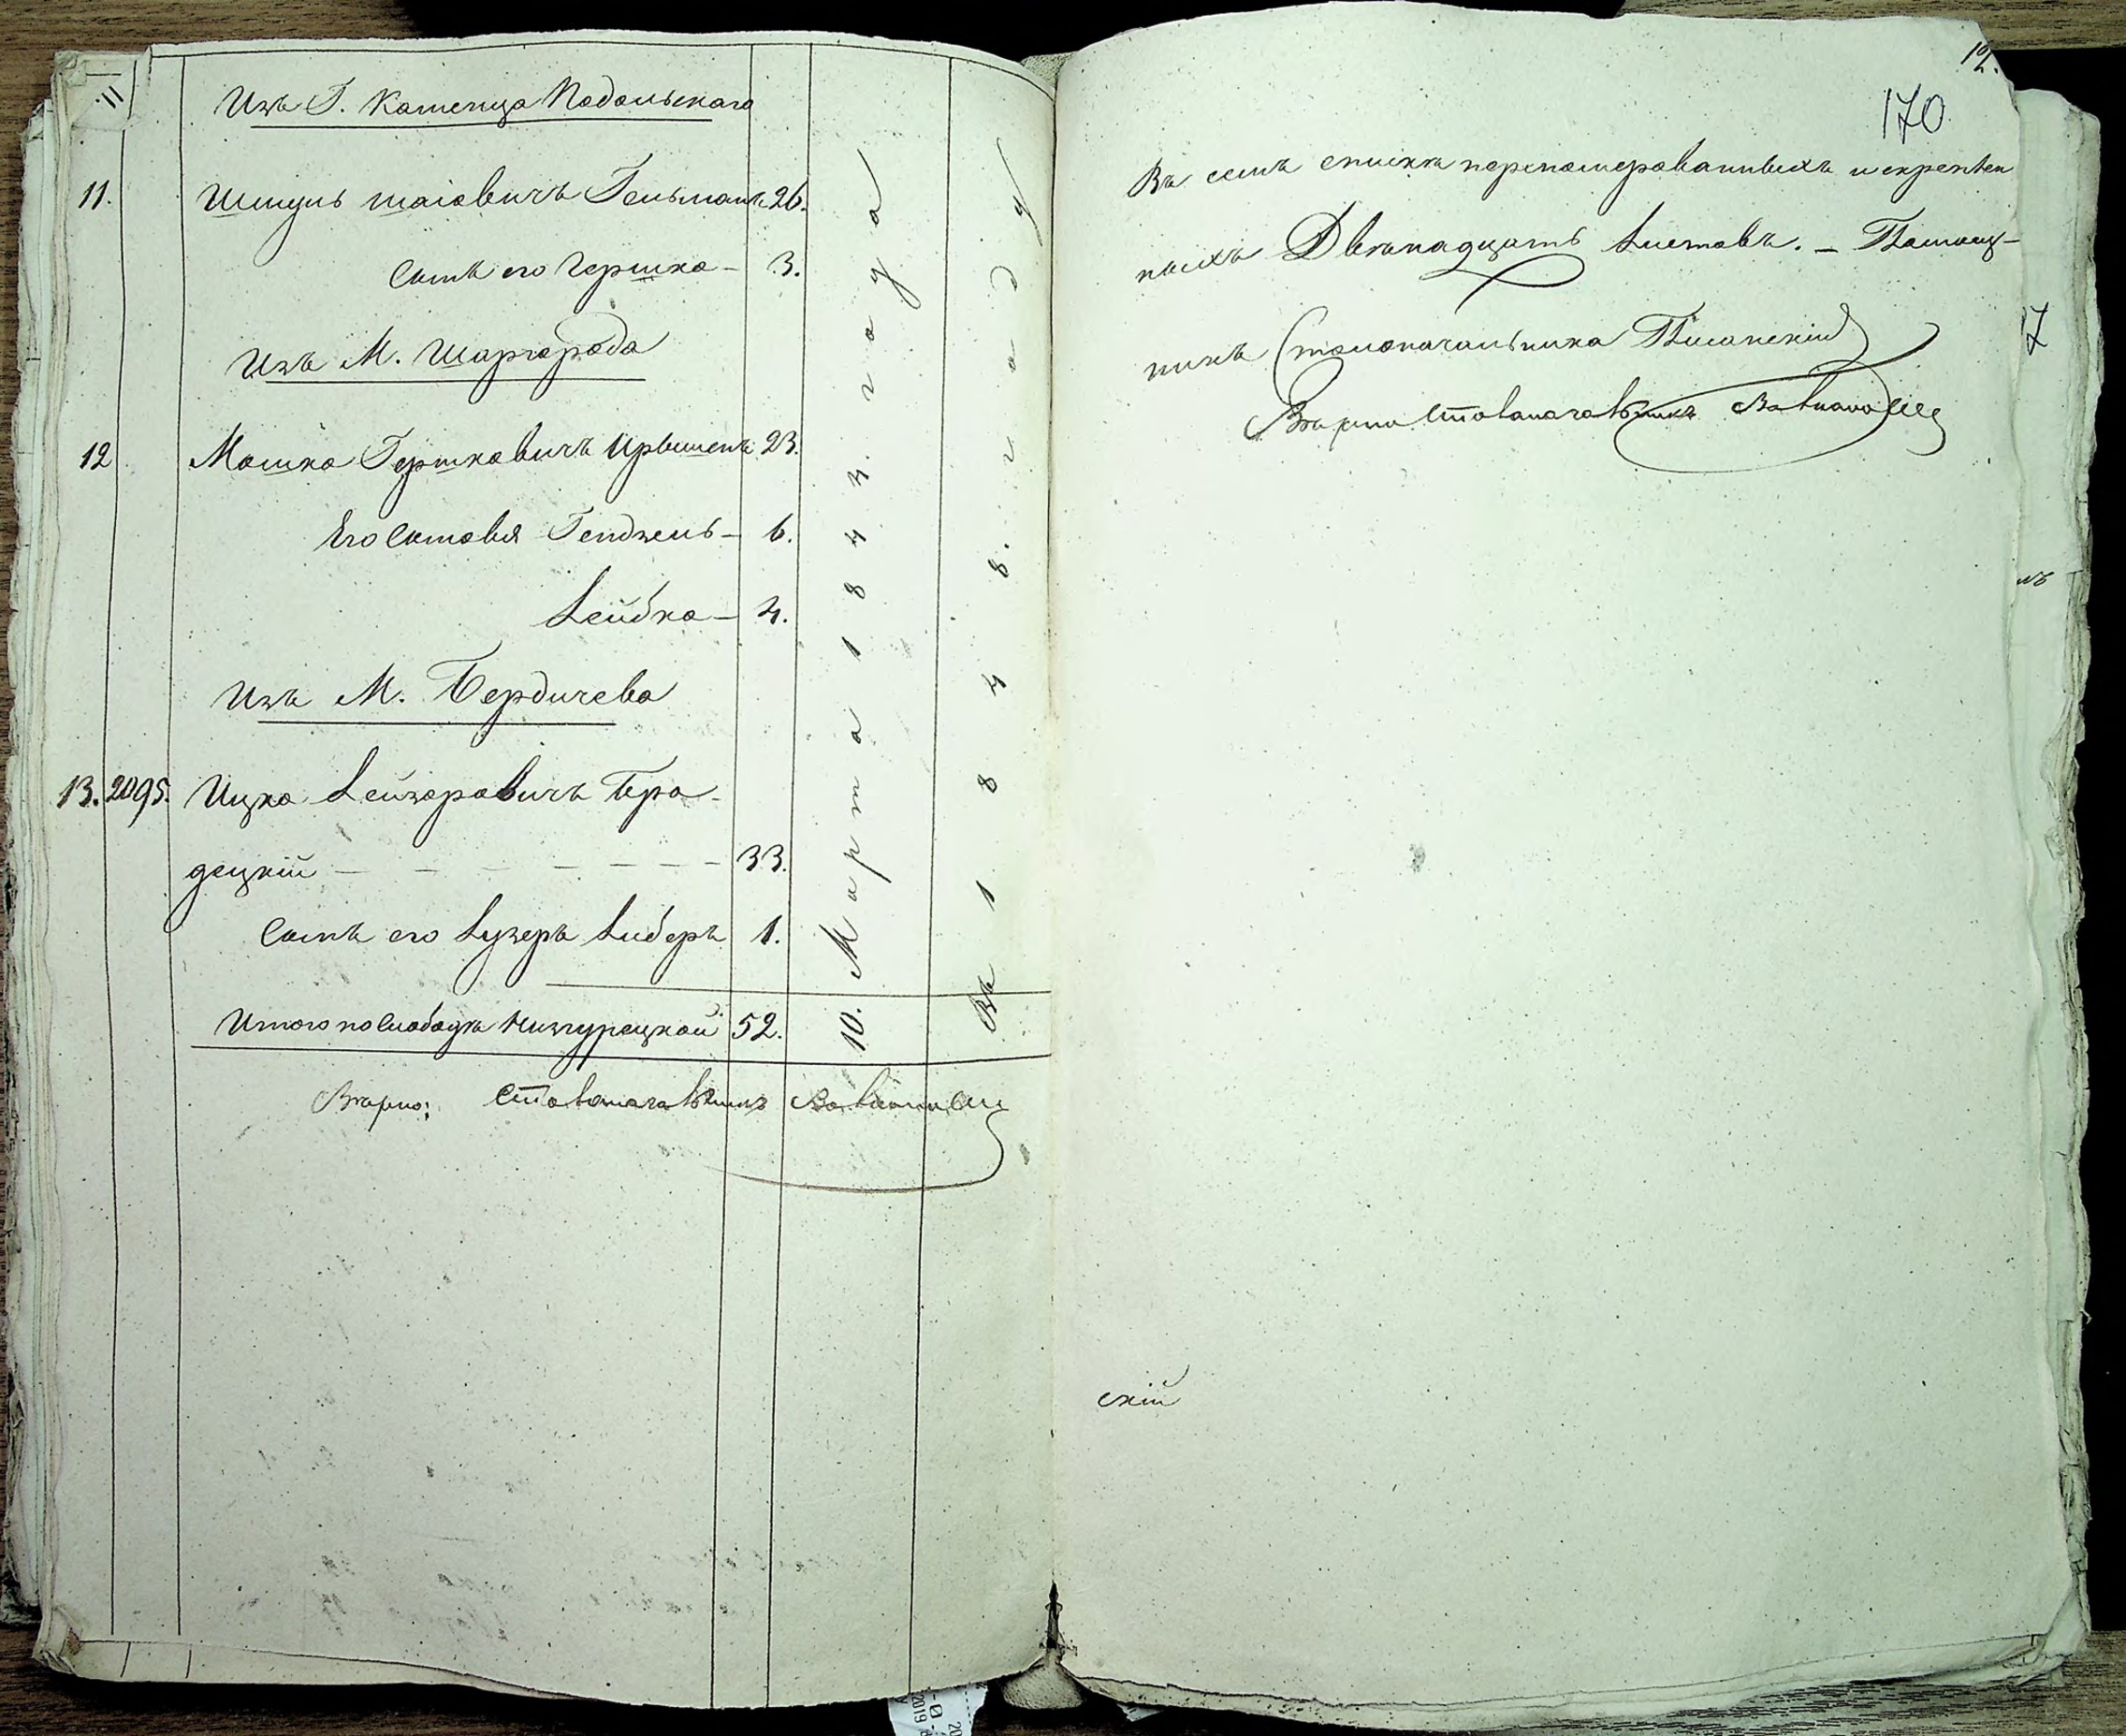 11
Изъ Г. Каменца Подольскаго
11. Шмуль Шаіовичъ Гельманъ 26.
Сынъ его Гершко — 3.
Изъ М. Шаргорода
12 Мошко Гершковичъ 23.
Его Сыновья Гендзель — 6.
Лейбко — 4.
Изъ М. Бердичева
13. 2095. Ицко Лейзоровичъ Бро-
децкій — — — — — — — 33.
Сынъ его Лузеръ Либеръ 1.
Итого по Слободкѣ 52.
Вѣрно: Столоначальникъ
10. Марта 1844. года
Въ 1848. году
12.
170
Въ семъ спискѣ перенумерованныхъ и скреплен
ныхъ Двѣнадцать Листовъ. — Помощ-
никъ Столоначальника
Вѣрно Столоначальникъ
скій
17